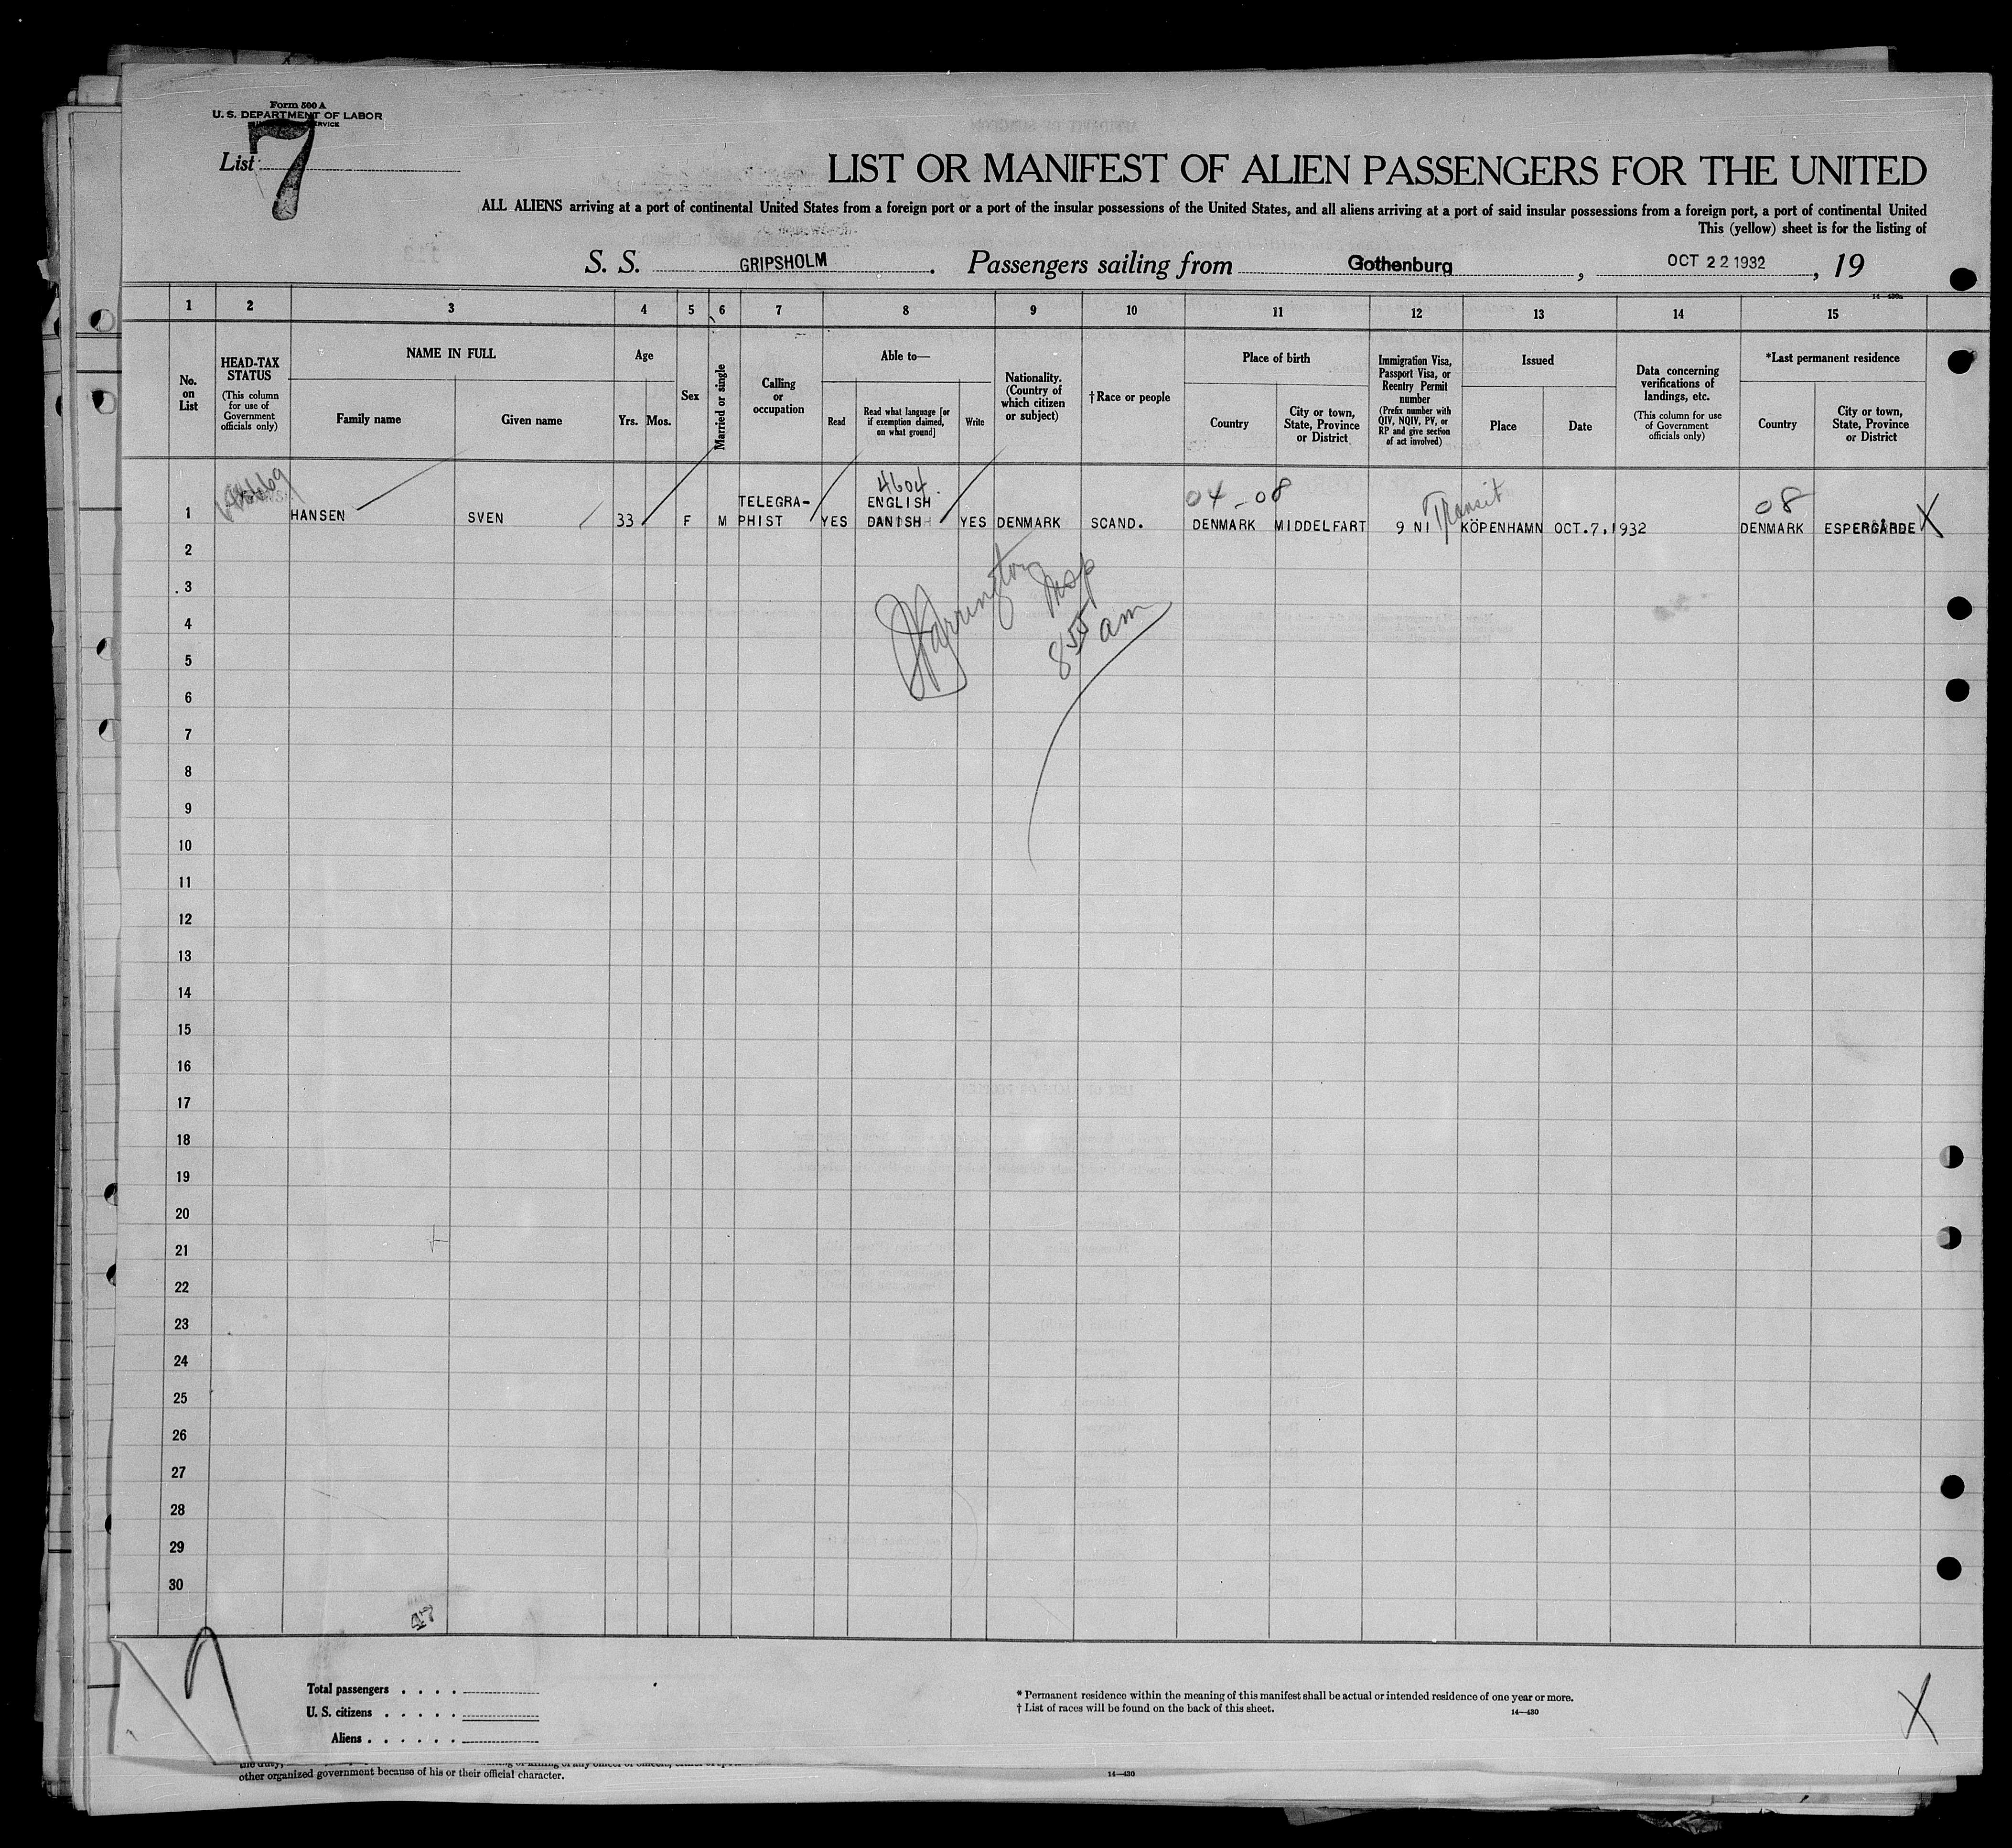 Form 500 A
U. S. DEPARTMENT OF LABOR
List 7
LIST OR MANIFEST OF ALIEN PASSENGERS FOR THE UNITED
ALL ALIENS arriving at a port of continental United States from a foreign port or a port of the insular possessions of the United States, and all aliens arriving at a port of said insular possessions from a foreign port, a port of continental United
This (yellow) sheet is for the listing of
S. S. GRIPSHOLM. Passengers sailing from Gothenburg, OCT 22 1932, 19
1 2 3 4 5 6 7 8 9 10 11 12 13 14 15
No. on List
HEAD-TAX STATUS
(This column for use of Government officials only)
NAME IN FULL
Family name
Given name
Age
Yrs. Mos.
Sex
Married or single
Calling or occupation
Able to—
Read
Read what language [or if exemption claimed, on what ground]
Write
Nationality. (Country of which citizen or subject)
†Race or people
Place of birth
Country
City or town, State, Province or District
Immigration Visa, Passport Visa, or Reentry Permit number
(Prefix number with QIV, NQIV, PV, or RP and give section of act involved)
Issued
Place
Date
Data concerning verifications of landings, etc.
(This column for use of Government officials only)
*Last permanent residence
Country
City or town, State, Province or District
4604 04-08 Transit 08
TELEGRA- ENGLISH
1 HANSEN SVEN 33 F M PHIST YES DANISH YES DENMARK SCAND. DENMARK MIDDELFART 9 NI KÖPENHAMN OCT.7,1932 DENMARK ESPERGÄRDE X
2
3
Harrington Insp
4
8 55 am
5
6
7
8
9
10
11
12
13
14
15
16
17
18
19
20
21
22
23
24
25
26
27
28
29
30
47
Total passengers . . . .
U. S. citizens . . . . .
Aliens . . . . . .
* Permanent residence within the meaning of this manifest shall be actual or intended residence of one year or more.
† List of races will be found on the back of this sheet.
14—430
X
other organized government because of his or their official character.
14—430